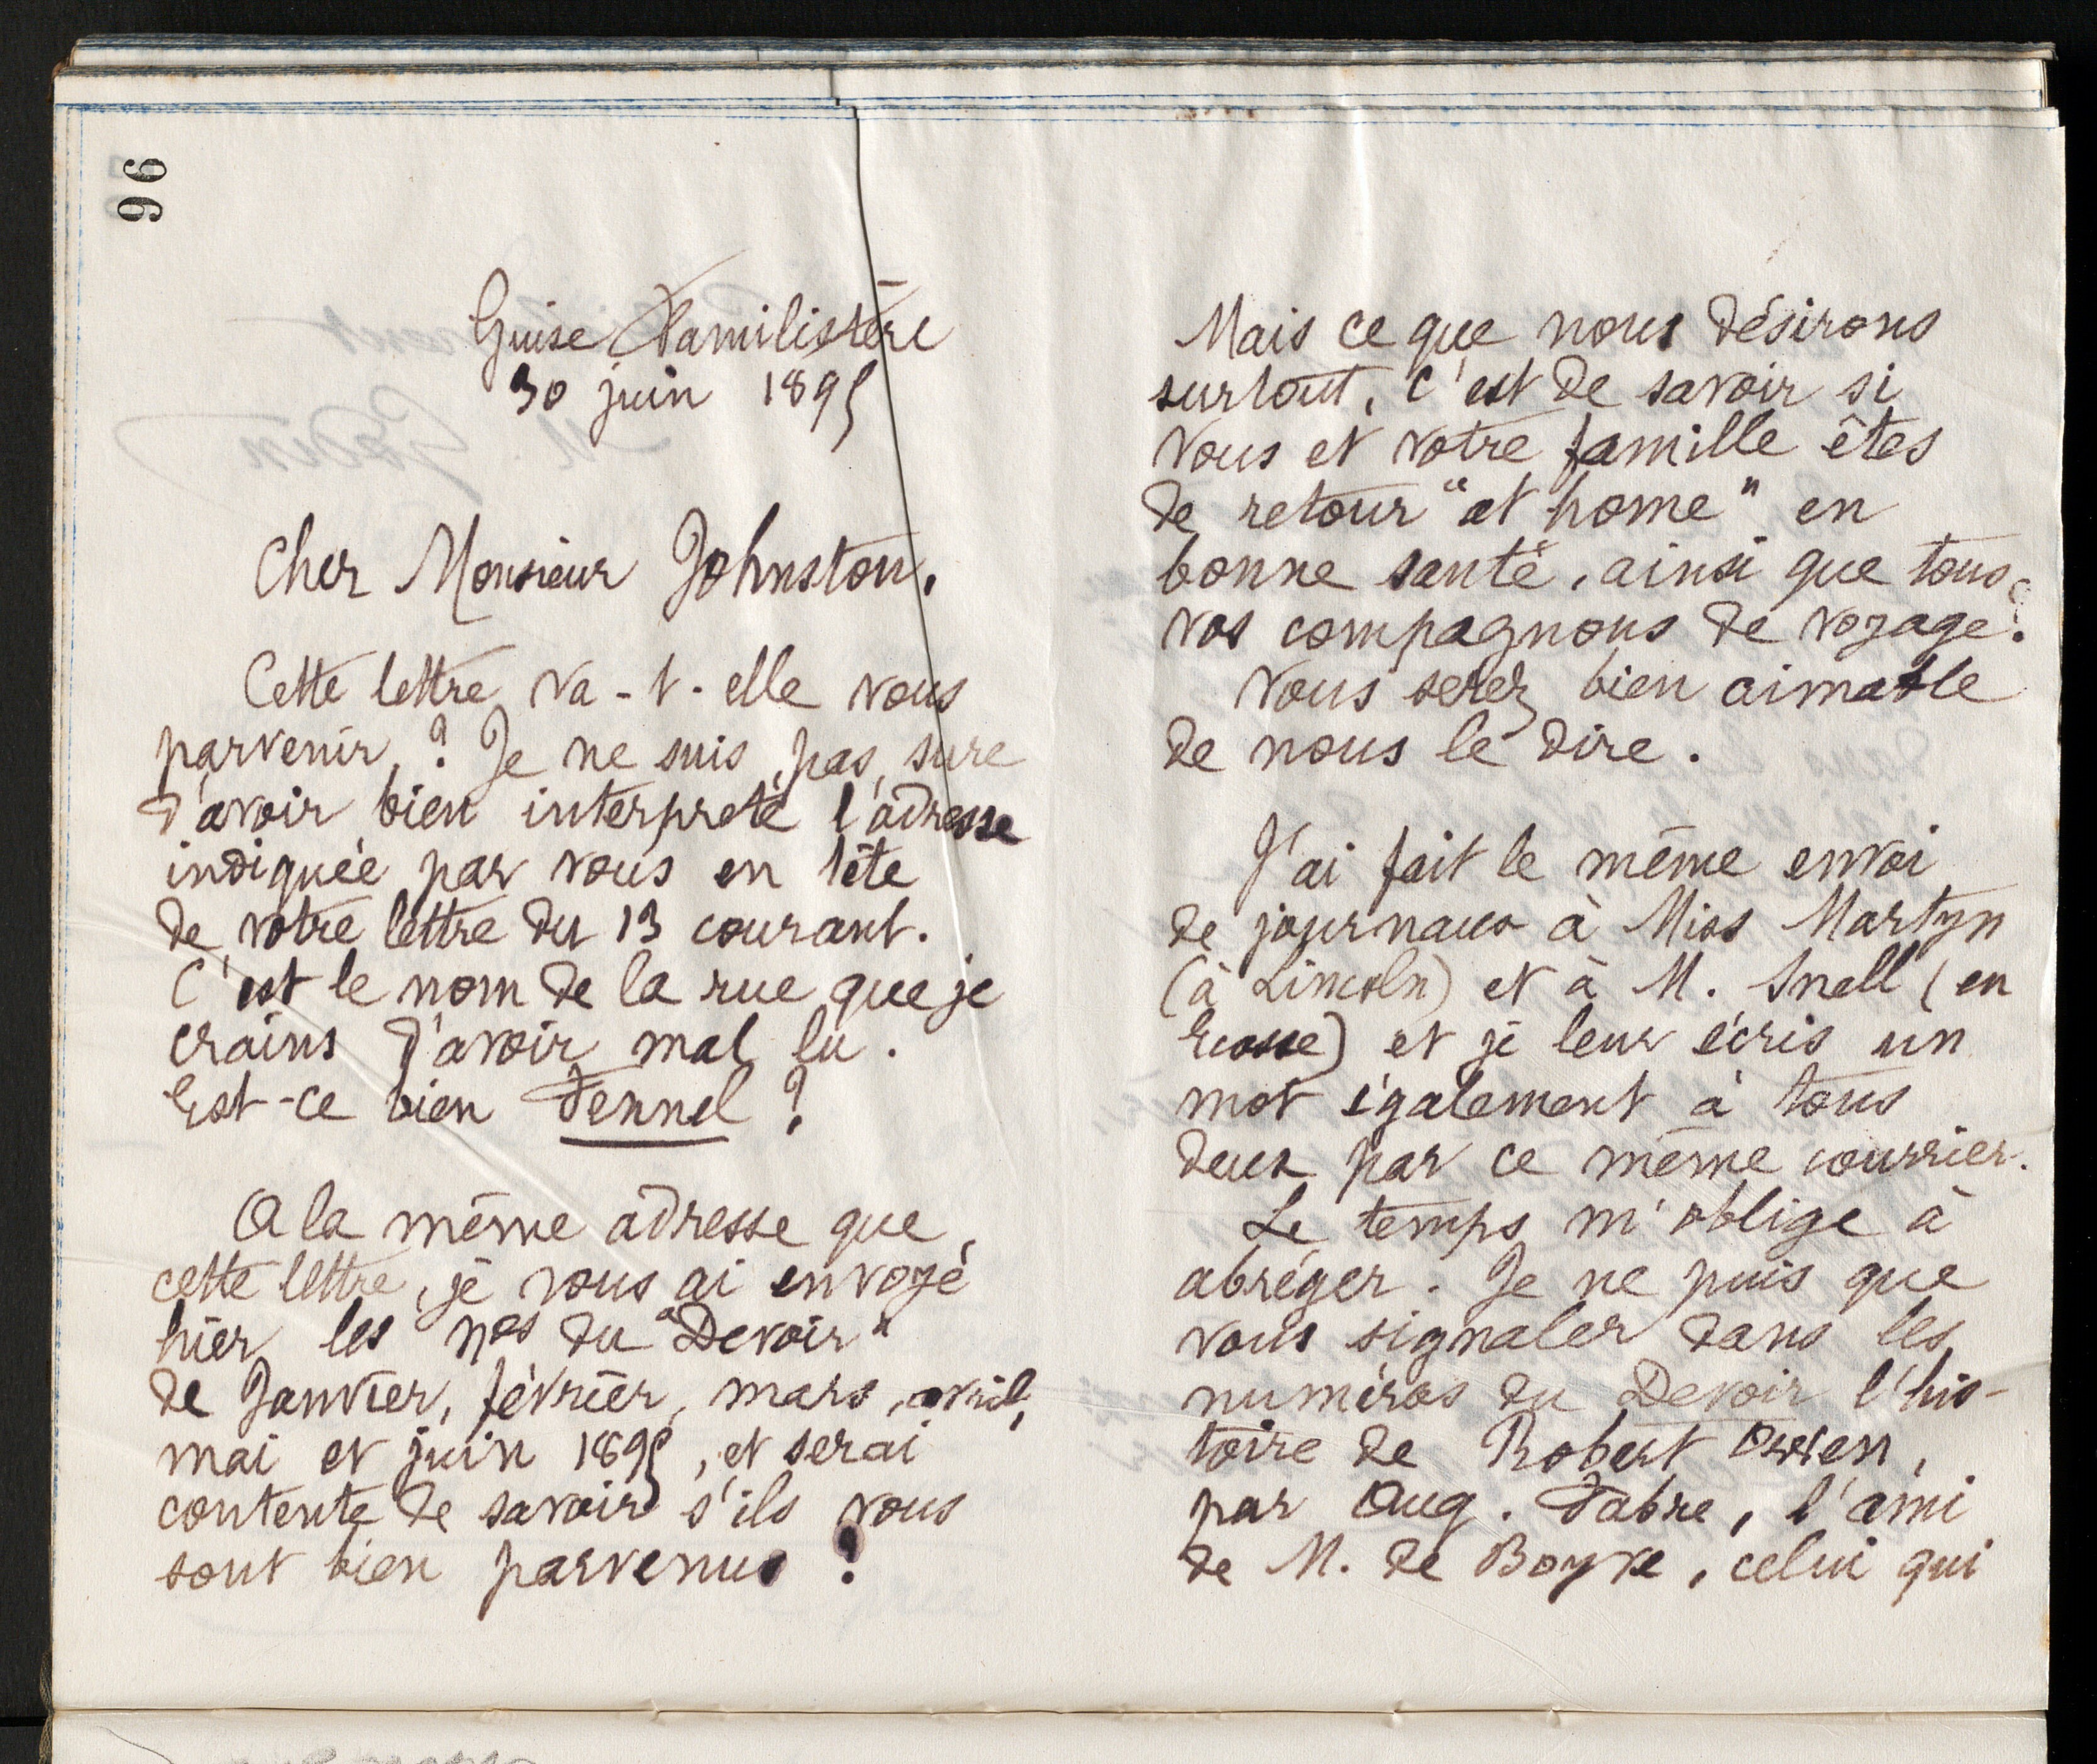 96
Guise Familistère
30 juin 1895
Cher Monsieur Johnston,
Cette lettre va-t-elle vous
parvenir ? Je ne suis pas sure
d'avoir bien interpreté l'adresse
indiquée par vous en tête
de votre lettre du 13 courant.
C'est le nom de la rue que je
crains d'avoir mal lu.
Est-ce bien Fennel ?
A la même adresse que
cette lettre, je vous ai envoyé
hier les nos du "Devoir"
de Janvier, février, mars, avril,
mai et juin 1895, et serai
contente de savoir s'ils vous
sont bien parvenus ?
Mais ce que nous désirons
surtout, c'est de savoir si
vous et votre famille êtes
de retour "at home" en
bonne santé, ainsi que tous
vos compagnons de voyage.
Vous serez bien aimable
de nous le dire.
J'ai fait le même envoi
de journaux à Miss Martyn
(à Lincoln) et à M. Snell (en
Ecosse) et je leur écris un
mot également à tous
deux par ce même courrier.
Le temps m'oblige à
abréger. Je ne puis que
vous signaler dans les
numéros du Devoir l'his-
toire de Robert Owen,
par Aug. Fabre, l'ami
de M. de Boyve, celui qui